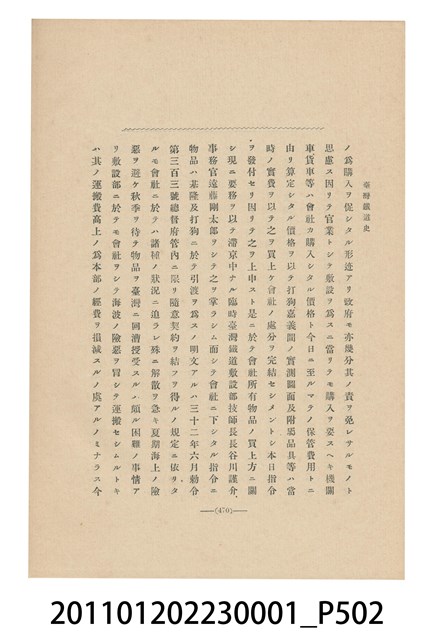 臺灣鐵道史
ノ爲購入ヲ促シタル形迹アリ政府モ亦幾分其ノ責ヲ免レサルモノト
思慮ス因リテ官業トシテ敷設ヲ爲スニ當リテモ購入ヲ要スヘキ機關
車貨車等ハ會社カ購入シタル價格ト今日ニ至ルマテノ保管費用トニ
由リ算定シタル價格ヲ以テ打狗嘉義間ノ實測圖面及附屬品具等ハ當
時ノ實費ヲ以テ之ヲ買上ケ會社ノ處分ヲ完結セシメントシ本日指令
ヲ發付セリ因リテ之ヲ上申スト是ニ於テ會社所有物品ノ買上方ニ關
シ現ニ要務ヲ以テ滯京中ナル臨時臺灣鐵道敷設部技師長長谷川謹介
事務官遠藤剛太郎ヲシテ之ヲ掌ラシム而シテ會社ニ下シタル指令ニ
物品ハ基隆及打狗ニ於テ引渡ヲ爲スノ明文アルハ三十二年六月勅令
第三百三號總督府管內ニ限リ隨意契約ヲ結フヲ得ルノ規定ニ依リタ
ルモ會社ニ於テハ諸種ノ狀況ニ迫ラレ殊ニ解散ヲ急キ夏期海上ノ險
惡ヲ避ケ秋季ヲ待テ物品ヲ臺灣ニ囘漕授受スルノ頗ル困難ノ事情ア
リ敷設部ニ於テモ會社ヲシテ海波ノ險惡ヲ冒シテ運搬セシムルトキ
ハ其ノ運搬費高上ノ爲本部ノ經費ヲ損減スルノ虞アルノミナラス今
(470)
201101202230001_P502